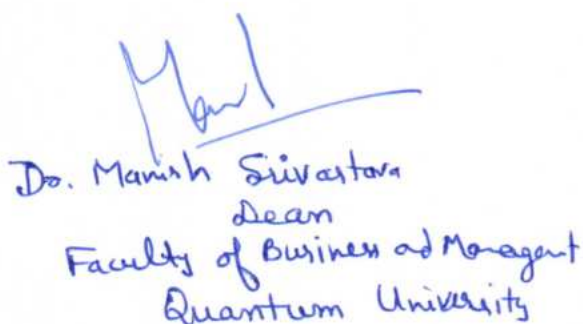 Dr. Manish Srivastava
Dean
Faculty of Business and Managent
Quantum University